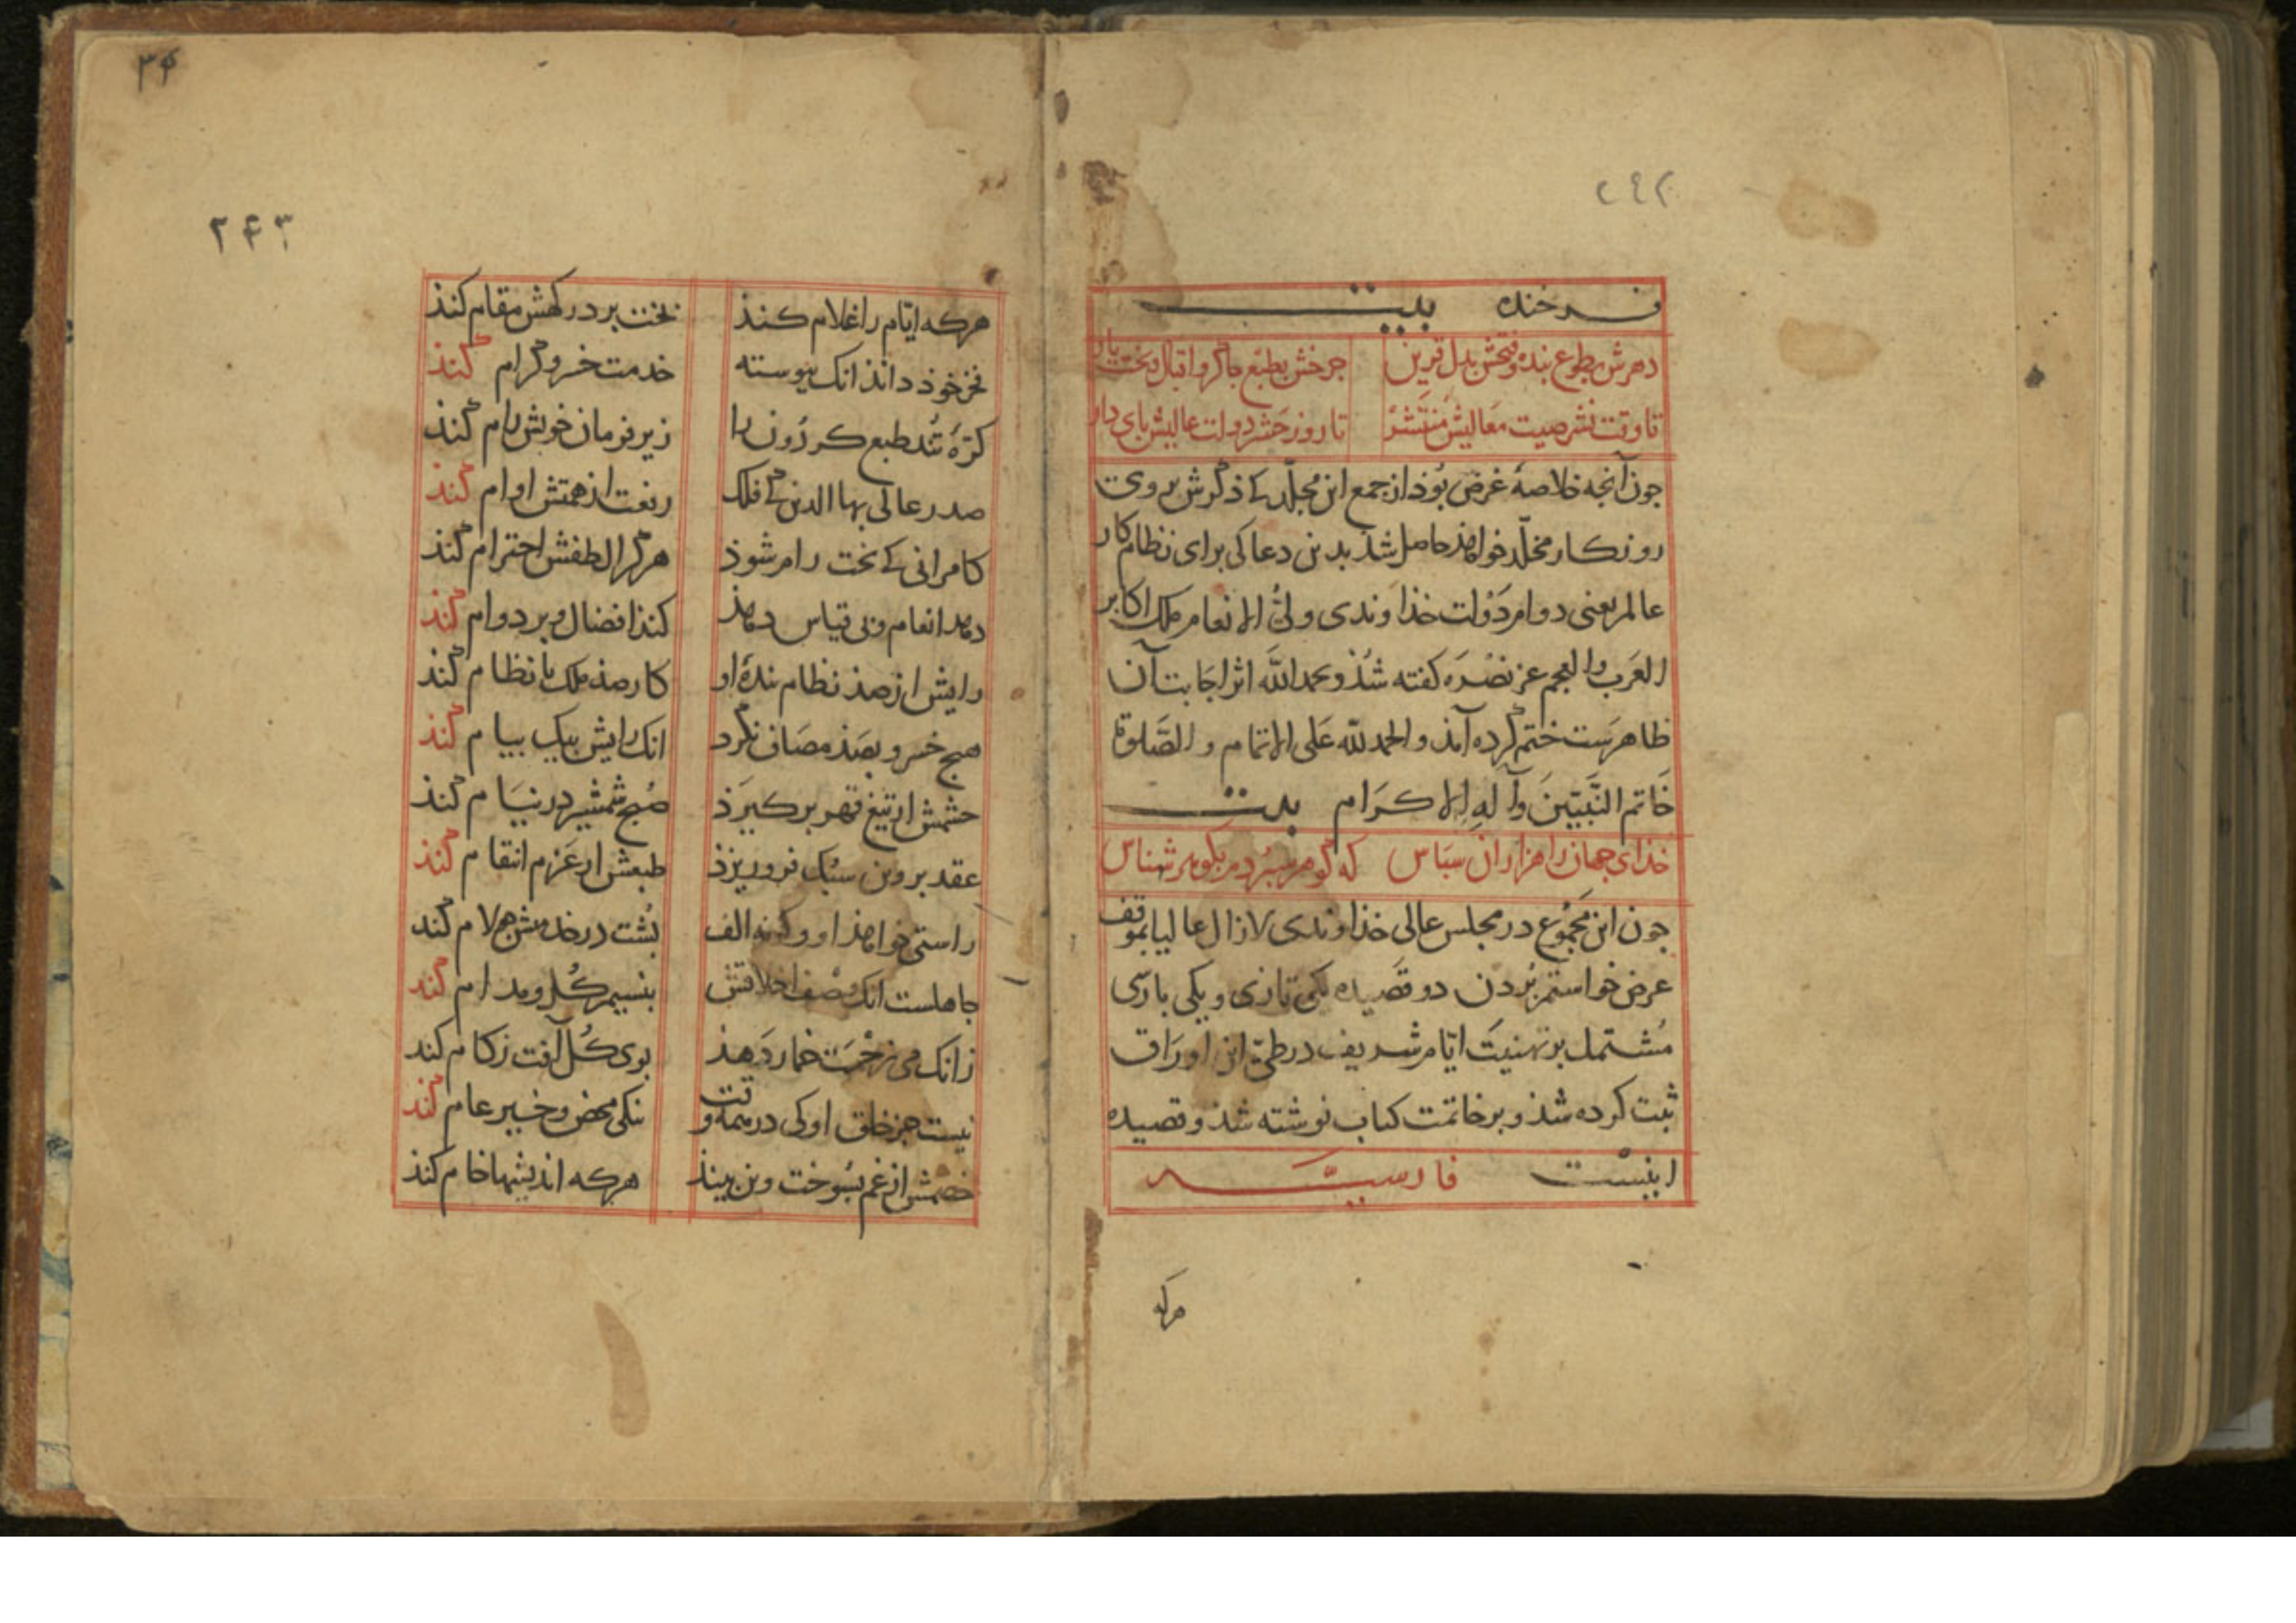 ۲۴۲
فرخنده بیت
دهرش بطوع بنده و فتحش بدل قرین جرخش بطبع جاکر و اقبال و بخت یار
تا وقت نشر صیت معالیش منتشر تا روز حشر دولت عالیش بای دار
جون آنجه خلاصهٔ غرض بوذ از جمع این مجلّد کے ذکرش بر وی
روزکار مخلّد خواهذ حاصل شذ بدین دعا کی برای نظام کار
عالم یعنی دوام دَوْلت خذاوندی ولیُّ الانعام ملک اکابر
العَرَب والعجم عز نصْرَه کفته شذ و بحمد اللّه اثر اجَابت آن
ظاهرست ختم کرده آمذ و الحمد للّه عَلی الاتمام و الصَّلوة
خَاتم النَّبیّینَ وآلهِ الاکرَام بیت
خذای جهان را هزاران سبَاس که کوهر سبُردم بکوهر شناس
جون این مجْمُوع در مجلس عالی خذاوندی لازال عالیا بموقف
عرض خواستم بُردن دو قصَیده یکی تازی و یکی بارسی
مُشتمل بر تهنیَت ایّام شریف در طیّ این اورَاق
ثبت کرده شذ و بر خاتمت کتاب نوشته شذ و قصیده
اینست فارسیّه
هرکه
۳۴
۲۴۳
هرکه ایّام را غلام کنذ بخت بر درکهش مقام کنذ
فخر خوذ دانذ انک بیوسته خدمت خسرو کرام کنذ
کرّهٔ تُند طبع کردُون را زیر فرمان خویش رام کنذ
صدر عالی بهاالدین کے فلک رفعت از همتش اوام کنذ
کامرانی کے بخت رام شوذ هرکرا لطفش احترام کنذ
دهذ انعام و بی قیاس دهذ کنذ افضال و بر دوام کنذ
رایش از صذ نظام بندهٔ او کار صذ ملک با نظام کنذ
هیج خسرو بصَذ مصَاف نکرد انک رایش بیک بیام کنذ
خشمش ار تیغ قهر برکیرَذ صُبح شمشیر در نیَام کنذ
عقد بروین سبُک فرو ریزذ طبعش ار عَزم انتقام کنذ
راستی خواهذ او وکرنه الف بُشت در خدمتش جو لام کند
جاهلست انک وصْف اخلاقش بنسیم کُل و مدام کنذ
زانک می زحْمت خمار دَهذ بوی کُل آفت زکام کند
نیست جز خلق او کی در همه وقت نیکی محض و خیر عام کنذ
خصْمش از غم بسُوخت وین بینذ هرکه اندیشها خام کنذ